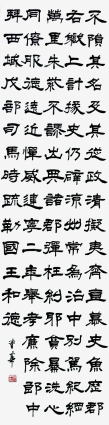 不隕其名及其從政清擬夷齊直慕史魚歷郡
右職上計掾史仍辟涼州常為治中別駕紀綱
萬里朱紫不謬出典諸郡彈枉糾邪貪暴洗心
同僚服德遠近憚威建寧二年舉孝廉除郎中
拜西域戊部司馬時疏勒國王和德